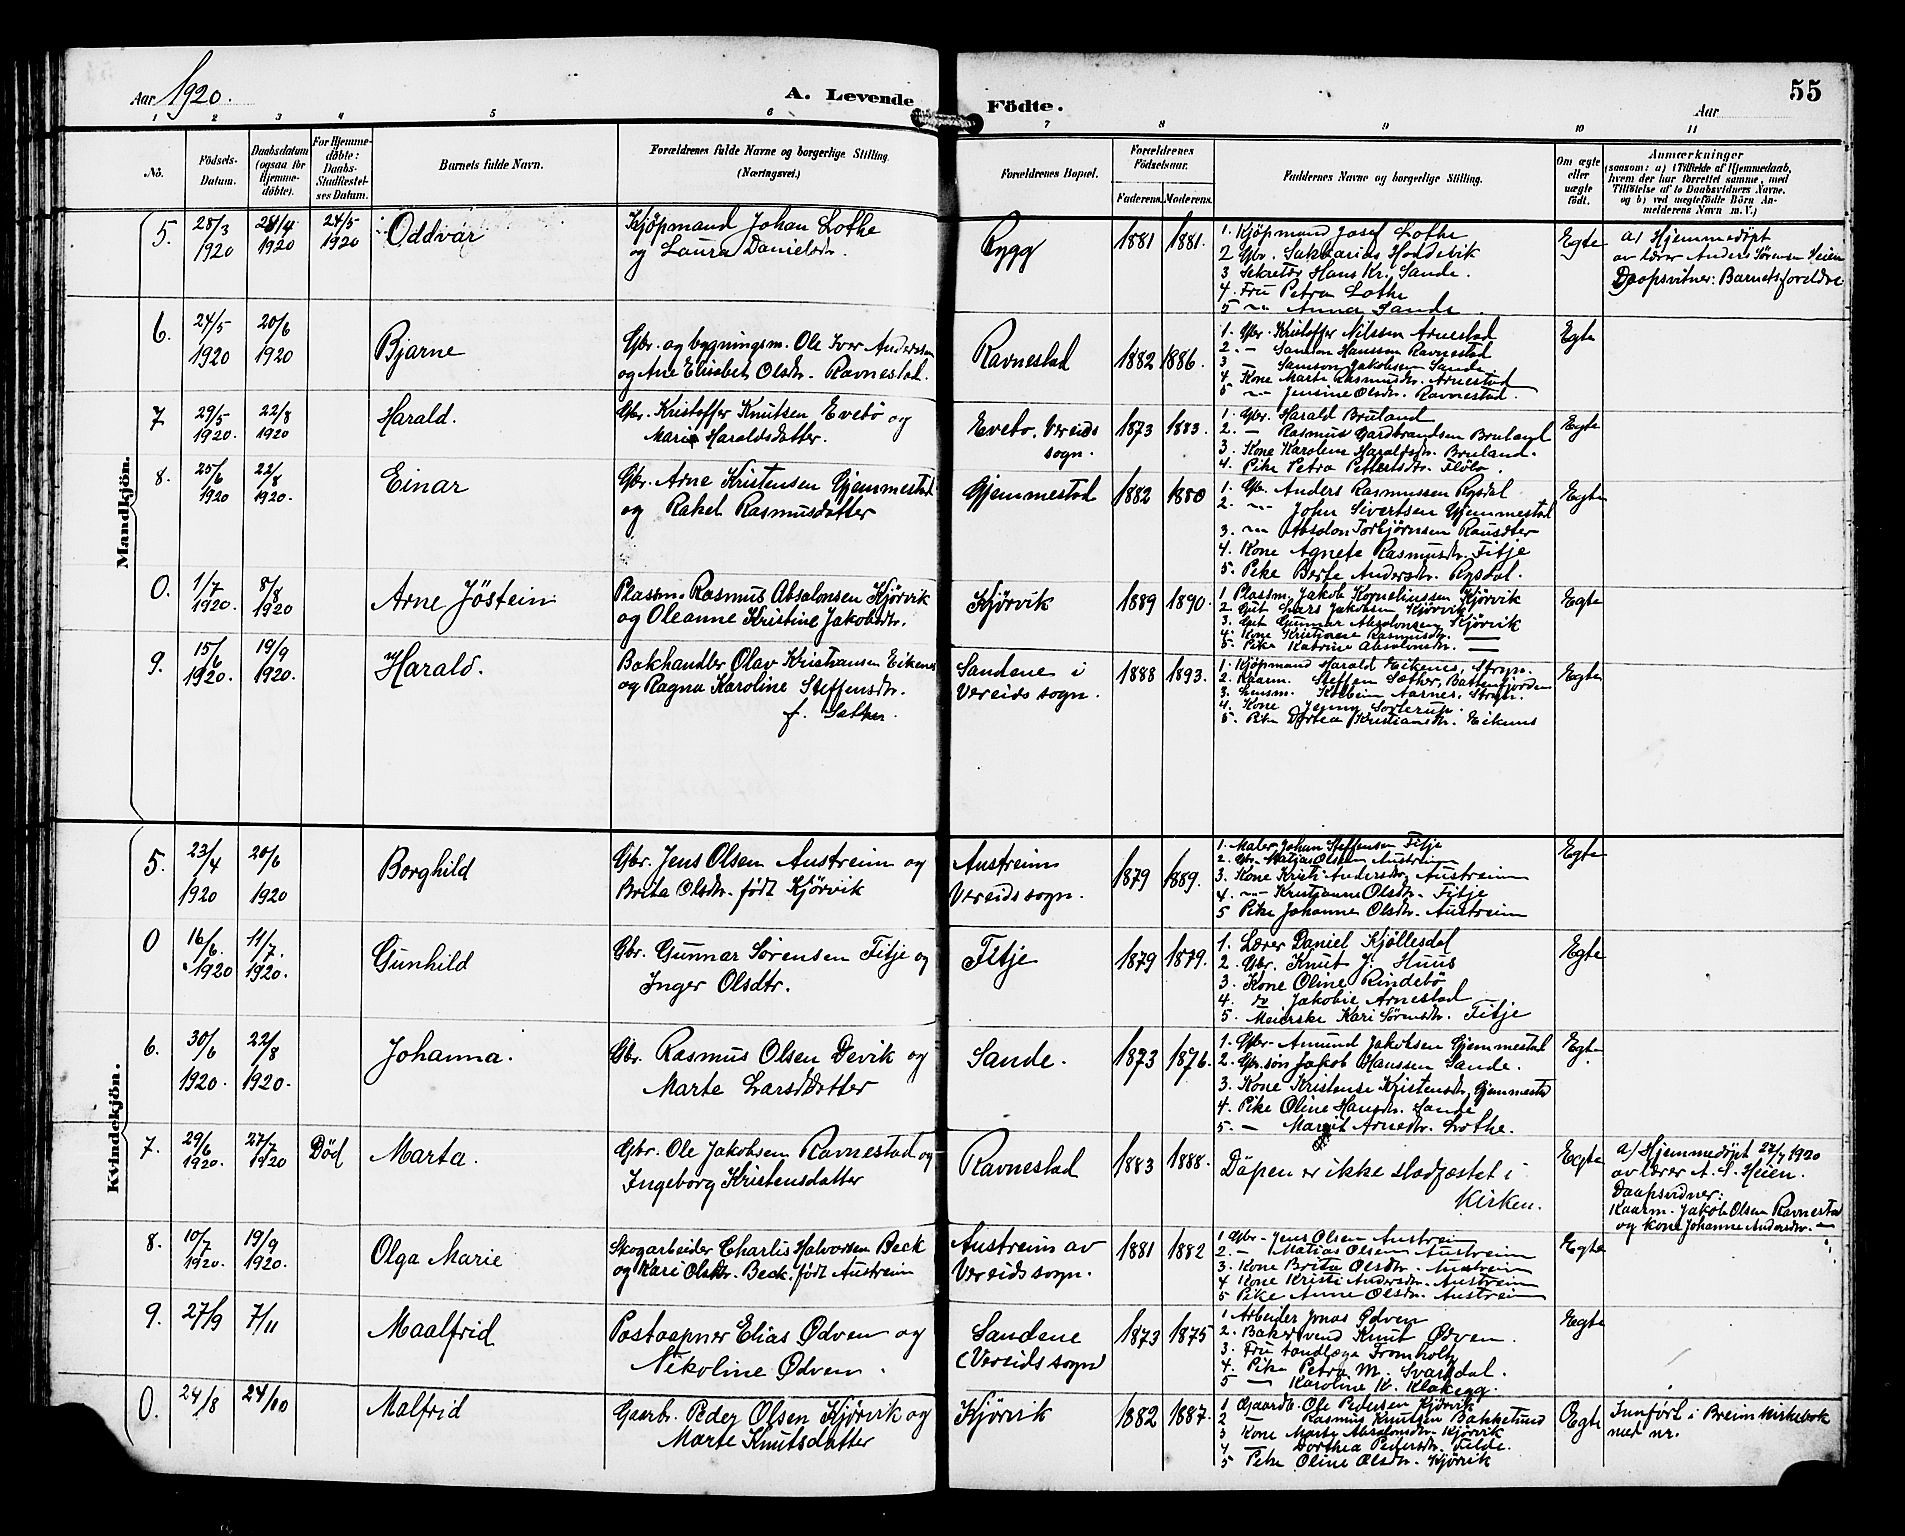 Aar 1920.
A. Levende Födte.
Aar
55
1 2 3 4 5 6 7 8 9 10 11
No.
Födsels-Datum.
Daabsdatum (ogsaa for Hjemme-döbte).
For Hjemme-döbte: Daabs-Stadfæstel-ses Datum.
Barnets fulde Navn.
Forældrenes fulde Navne og borgerlige Stilling.
(Næringsvei.)
Forældrenes Bopæl.
Forældrenes Födselsaar.
Faderens. Moderens.
Faddernes Navne og borgerlige Stilling.
Om ægte eller uægte födt.
Anmærkninger
(saasom: a) i Tilfælde af Hjemmedaab, hvem der har forrettet samme, med Tilföielse af to Daabsvidners Navne, og b) ved uægtefödte Börn An-melderens Navn m. V.)
Mandkjön.
5. 28/3 1920 24/4 1920 24/5 1920 Oddvar
Kjöpmand Johan Lothe
og Laura Danielsdtr.
Rygg 1881 1881.
1. Kjöpmand Josef Lothe
2 Gbr. Sakkarias Hoddevik
3 Sekretær Hans Kr. Sande.
4. Fru Petra Lothe
5 -"- Anna Sande
Egte
a/ Hjemmedöpt
av lærer Anders Sörensen Heien
Daapsvitner: Barnets foreldre
6. 24/5 1920 20/6 1920 Bjarne
Gbr. og bygningsm. Ole Iver Anderssen
og Ane Elisabet Olsdtr. Ravnestad.
Ravnestad 1882 1886.
1. Gbr. Kristoffer Nilssen Arnestad
2. - Samson Hanssen Ravnestad
3 - Samson Jakobsen Sande
4. Kone Marte Rasmusdtr. Arnestad
5 -"- Jensine Olsdtr. Ravnestad.
Egte
7. 29/5 1920. 22/8 1920 Harald.
Gbr. Kristoffer Knutsen Evebö og
Marie Haraldsdatter.
Evebö, Vereids sogn. 1873 1883.
1. Gbr. Harald Bruland
2. - Rasmus Gardbrandsen Bruland
3. Kone Karolene Haraldsdtr. Bruland.
4. Pike Petra Pettersdtr. Flölo.
Egte
8. 25/6 1920 22/8 1920. Einar
Gbr. Arne Kristensen Gjemmestad
og Rakel Rasmusdatter
Gjemmestad 1882 1880
1. Gbr. Anders Rasmussen Rysdal
2. -"- John Sivertsen Gjemmestad
3. -"- Absolon Torbjörnsen Rausdter
4. Kone Agnete Rasmusdtr. Fitje
5. Pike Berte Andersdtr. Rysdal.
Egte
0. 1/7 1920. 8/8 1920 Arne Jöstein
Plassm. Rasmus Absalonsen Kjörvik
og Oleanne Kristine Jakobsdtr.
Kjörvik 1889 1890.
1 Plassm. Jakob Korneliussen Kjörvik
2 Gut Lars Jakobsen Kjörvik
3. Gut Gunnar Absalonsen Kjörvik
4. Kone Kristiane Rasmusdtr. —
5. Pike Katrine Absalonsdtr. —
Egte
9. 15/6 1920. 19/9 1920. Harald.
Bokhandler Olav Kristiansen Eikenes
og Ragna Karoline Steffensdtr.
f. Sæther.
Sandene i Vereids sogn. 1888 1893.
1. Kjöpmand Harald Eikenes, Stryn.
2. Kaarm. Steffen Sæther, Battenfjorden
3. Lensm. Kolbein Aarnes, Stryn.
4. Kone Jenny Sorterup.
5. Pike Dortea Kristiansdtr. Eikenes
Egte
Kvindekjön.
5. 23/4 1920 20/6 1920 Borghild
Gbr. Jens Olsen Austreim og
Brita Olsdtr. födt Kjörvik
Austreim Vereids sogn. 1879 1889.
1. Maler Johan Steffensen Fitje
2. Gbr. Matias Olsen Austreim
3. Kone Kristi Andersdtr. Austreim
4. -"- Kristianne Olsdtr. Fitje
5 Pike Johanne Olsdtr. Austreim
Egte
0 16/6. 1920 11/7. 1920. Gunhild
Gbr. Gunnar Sörensen Fitje og
Inger Olsdtr.
Fitje 1879 1879.
1. Lærer Daniel Kjöllesdal
2. Gbr. Knut J. Huus
3. Kone Oline Rindebö
4. do Jakobie Arnestad
5. Meierske Kari Sörensdtr. Fitje
Egte
6. 30/6 1920. 22/8 1920. Johanna.
Gbr. Rasmus Olsen Devik og
Marte Larsdatter
Sande. 1873 1876.
1. Gbr. Amund Jakobsen Gjemmestad
2. Gbr.sön Jakob Hanssen Sande.
3. Kone Kristense Kristensdtr. Gjemmestd
4. Pike Oline Hansdtr. Sande
5. - Margit Arnedtr. Lothe.
Egte
7. 29/6 1920. 27/7 1920 Död Marta.
Gbr. Ole Jakobsen Ravnestad og
Ingeborg Kristensdatter
Ravnestad 1883 1888.
Döpen er ikke stadfæstet i
Kirken.
Egte
a/ Hjemmedöpt 27/7 1920
av lærer A. S. Heien.
Daapsvidner:
Kaarm. Jakob Olsen Ravnestad
og kone Johanne Andersdtr. —
8. 10/7 1920. 19/9 1920. Olga Marie
Skogarbeider Charlis Halvorsen Beck
og Kari Olsdtr. Beck. födt Austreim
Austreim av Vereids sogn. 1881 1882
1 Gbr. Jens Olsen Austreim
2. - Matias Olsen Austreim
3. Kone Brita Olsdtr. Austreim
4 Kone Kristi Andersdtr. Austreim
5 Pike Anne Olsdtr. Austreim
Egte
9. 27/9 7/11 Maalfrid
Postaapner Elias Ødven og
Nikoline Ødven.
Sandene (Vereids sogn) 1873 1875
1 Arbeider Jonas Ødven
2. Bakersvend Knut Ødven.
3. Fru tandlæge Fromholtz
4. Pike Petra M. Svardal.
5 — Karoline K. Klakegg.
Egte
0. 24/8 24/10 Malfrid
Gaarbr. Peder Olsen Kjörvik og
Marte Knutsdatter
Kjörvik 1882 1887.
1 Gaardb. Ole Pedersen Kjörvik
2 — Rasmus Knutsen Bakketund
3 Kone Marte Absalonsdtr. Kjörvik
4 — Dorthea Pedersdtr. Felde.
5 Pike Oline Olsdtr. Kjörvik
Egte
Innfört i Breim kirkebok
med nr.